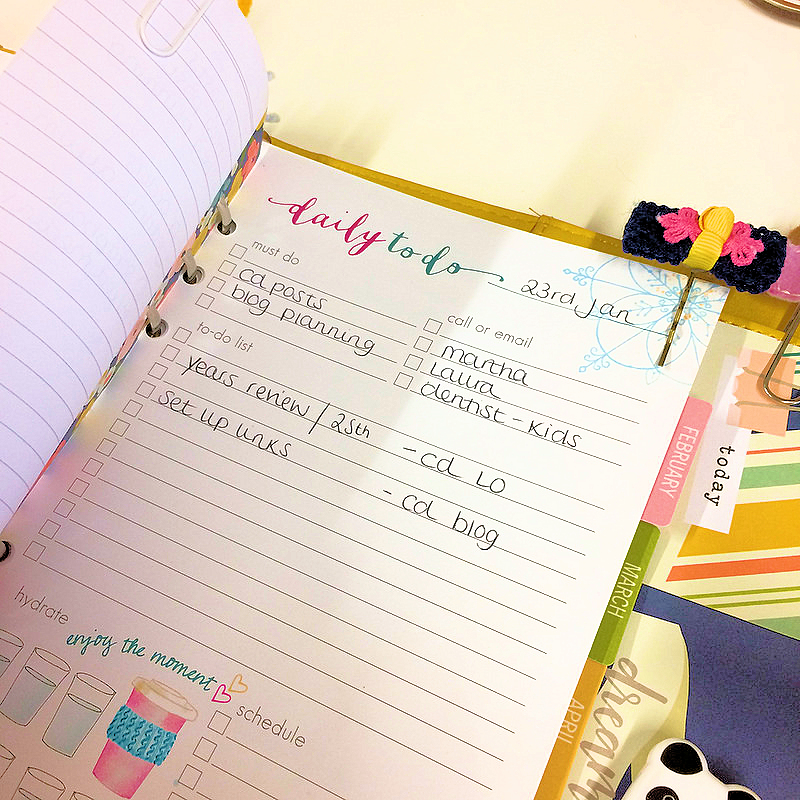 daily to do
23rd Jan
must do
cd posts
blog planning
call or email
martha
Laura
dentist - kids
to-do list
years review / 25th
set up links
- cd LO
- cd blog
hydrate
enjoy the moment
schedule
FEBRUARY
today
MARCH
APRIL
dream